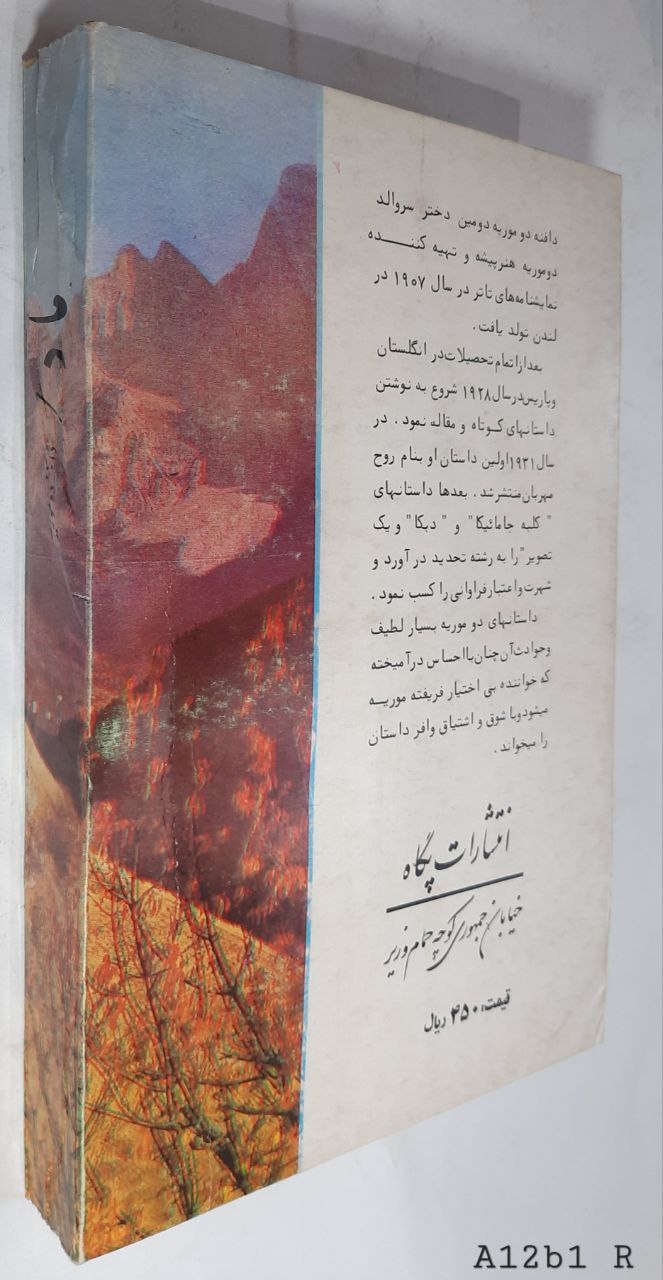 دافنه دو موریه دومین دختر سروالد
دوموریه هنرپیشه و تهیه کننــــده
نمایشنامه‌های تاتر در سال ۱۹۰۷ در
لندن تولد یافت.
بعد از اتمام تحصیلات در انگلستان
وپاریس در سال ۱۹۲۸ شروع به نوشتن
داستانهای کــوتاه و مقاله نمود. در
سال ۱۹۳۱ اولین داستان او بنام روح
مهربان منتشر شد. بعدها داستانهای
"کلبه جامائیکا" و "دبکا" و یک
تصویر" را به رشته تحدید در آورد و
شهرت و اعتبار فراوانی را کسب نمود.
داستانهای دو موریه بسیار لطیف
وحوادث آن چنان با احساس در آمیخته
که خواننده بی اختیار فریفته موریــه
میشود وبا شوق و اشتیاق وافر داستان
را میخواند.
انتشارات پگاه
خیابان جمهوری کوچه حمام وزیر
قیمت: ۳۵۰ ریال
A12b1 R